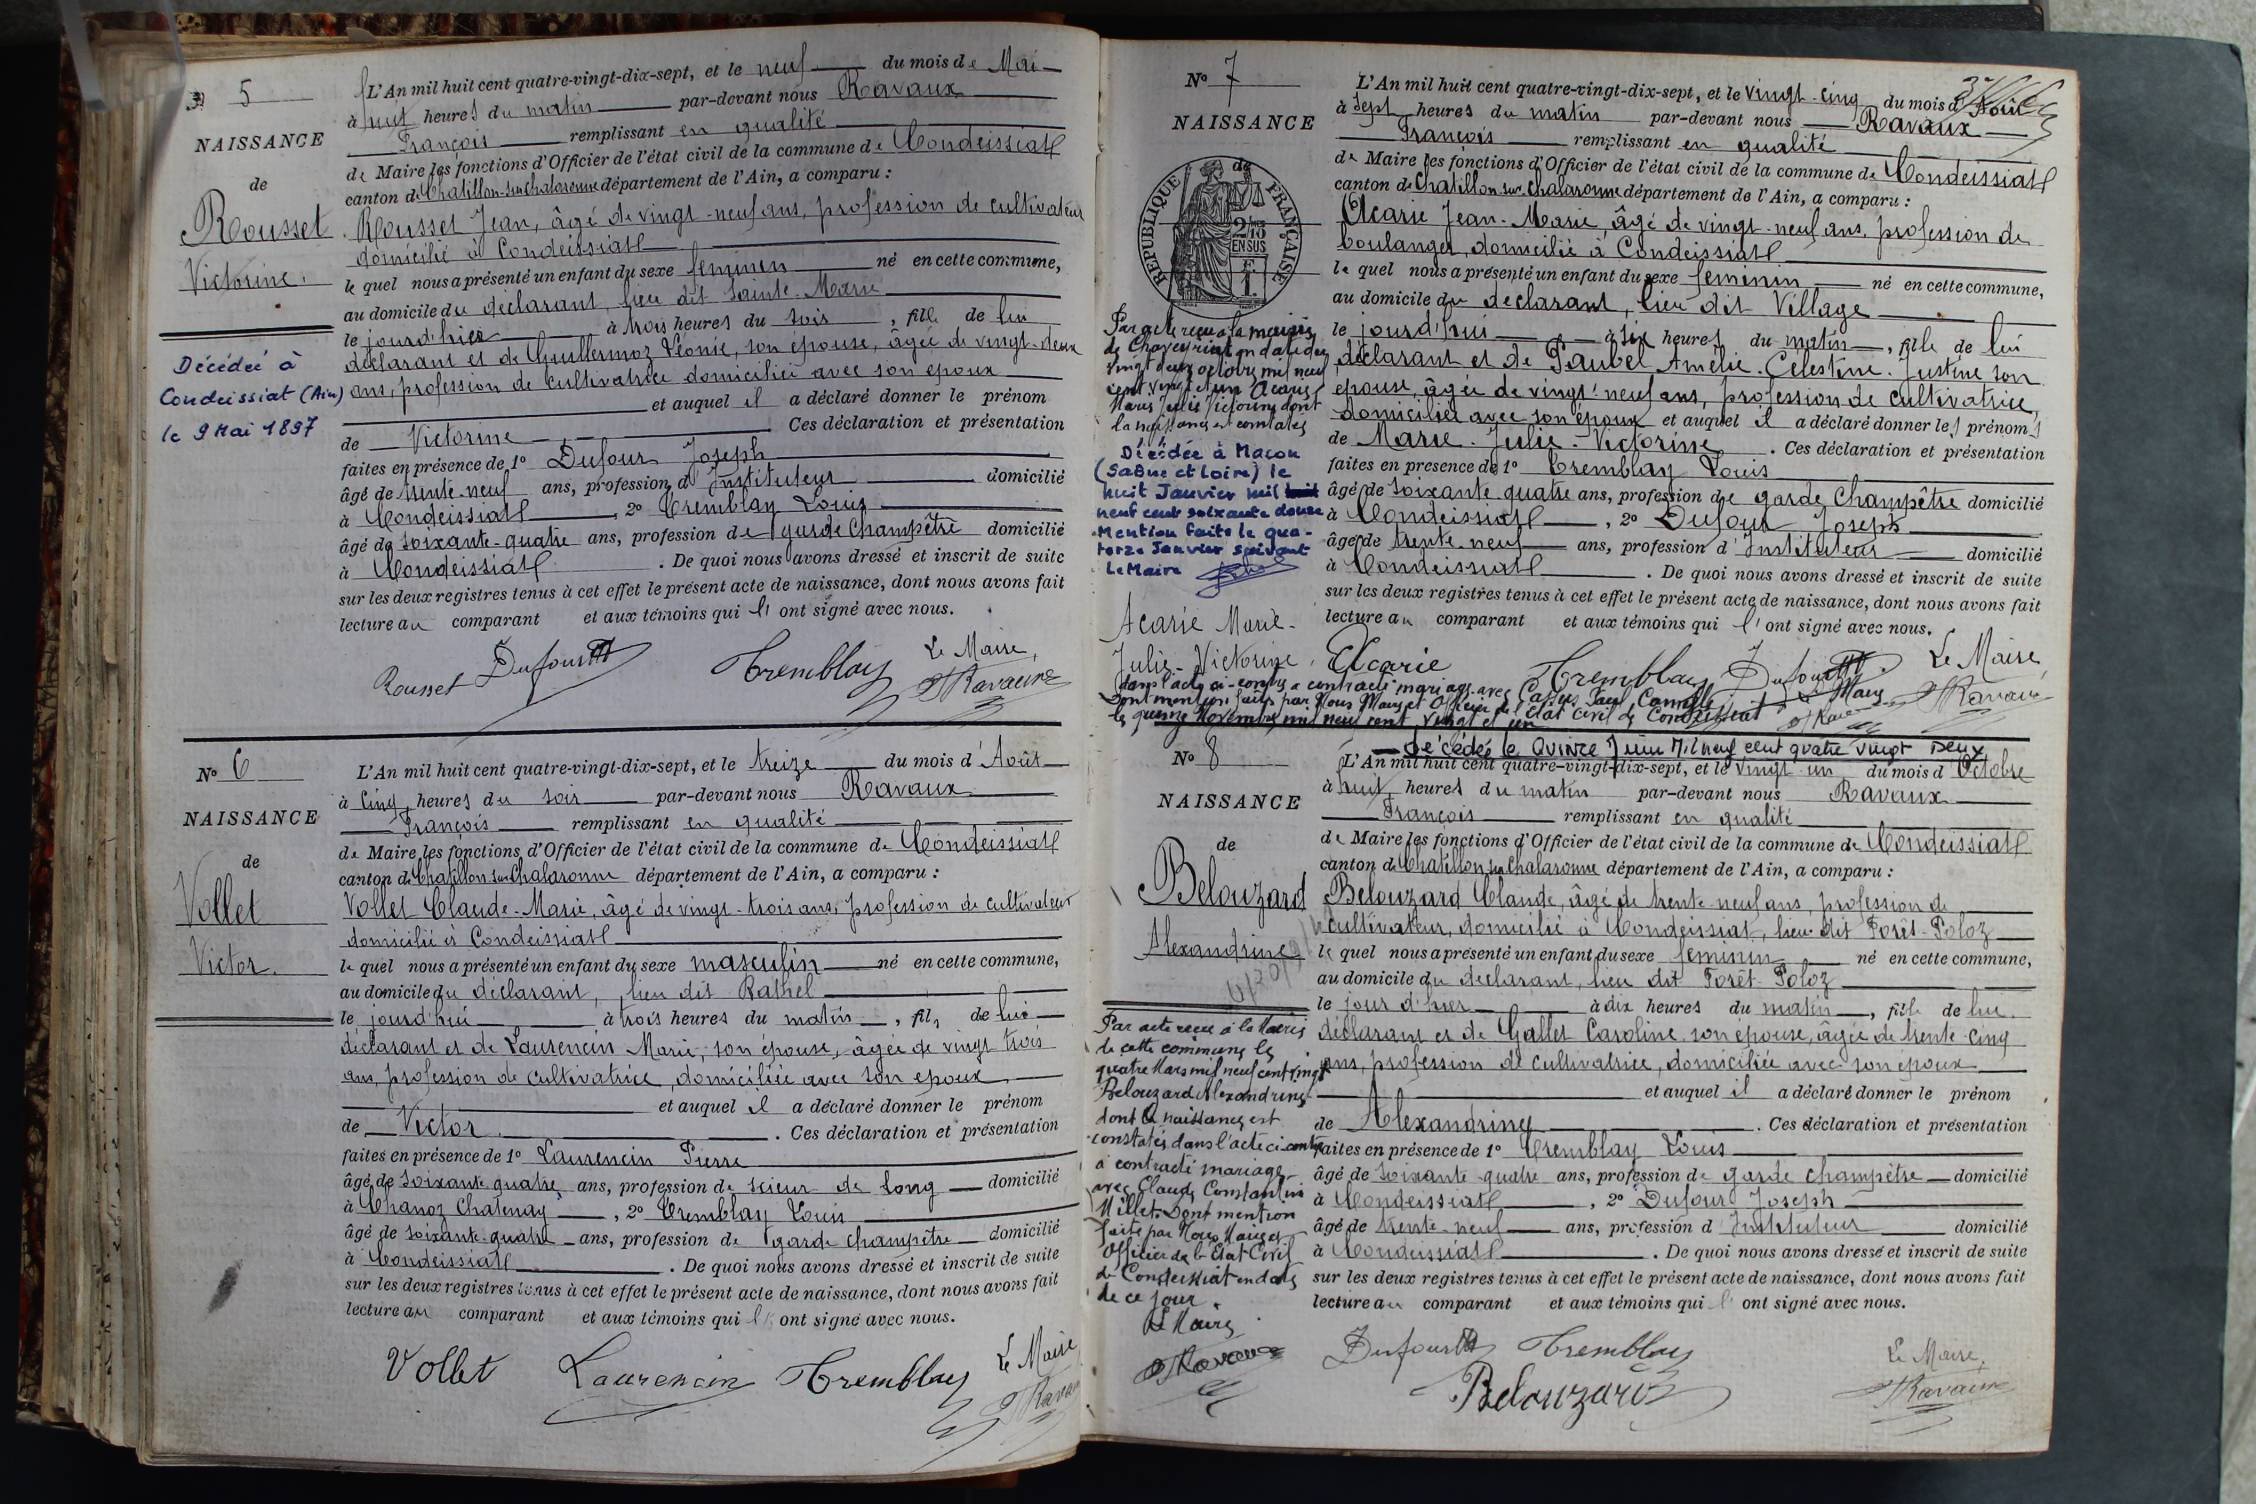 N° 5
NAISSANCE
de
Rousset
Victorine.
Décédée à
Condeissiat (Ain)
le 9 Mai 1897
L'An mil huit cent quatre-vingt-dix-sept, et le neuf du mois de Mai
à huit heures du matin par-devant nous Ravaux
François remplissant en qualité
de Maire les fonctions d'Officier de l'état civil de la commune de Condeissiat
canton de Chatillon-sur-Chalaronne département de l'Ain, a comparu :
Rousset Jean, âgé de vingt-neuf ans, profession de cultivateur
domicilié à Condeissiat
lequel nous a présenté un enfant du sexe féminin né en cette commune,
au domicile du déclarant, lieu dit Sainte-Marie
le jour d'hier à trois heures du soir, fille de lui
déclarant et de Guillermoz Léonie, son épouse, âgée de vingt-deux
ans, profession de cultivatrice domiciliée avec son époux
et auquel il a déclaré donner le prénom
de Victorine Ces déclaration et présentation
faites en présence de 1° Dufour Joseph
âgé de trente-neuf ans, profession d'Instituteur domicilié
à Condeissiat, 2° Tremblay Louis
âgé de soixante-quatre ans, profession de garde champêtre domicilié
à Condeissiat. De quoi nous avons dressé et inscrit de suite
sur les deux registres tenus à cet effet le présent acte de naissance, dont nous avons fait
lecture au comparant et aux témoins qui l'ont signé avec nous.
Rousset Dufour Tremblay Le Maire,
Ravaux
N° 6
NAISSANCE
de
Vollet
Victor.
L'An mil huit cent quatre-vingt-dix-sept, et le treize du mois d'Août
à cinq heures du soir par-devant nous Ravaux
François remplissant en qualité
de Maire les fonctions d'Officier de l'état civil de la commune de Condeissiat
canton de Chatillon sur Chalaronne département de l'Ain, a comparu :
Vollet Claude-Marie, âgé de vingt-trois ans, profession de cultivateur
domicilié à Condeissiat
lequel nous a présenté un enfant du sexe masculin né en cette commune,
au domicile du déclarant, lieu dit Rathel
le jourd'hui à trois heures du matin, fils de lui
déclarant et de Laurencin Marie, son épouse, âgée de vingt trois
ans, profession de cultivatrice, domiciliée avec son époux
et auquel il a déclaré donner le prénom
de Victor. Ces déclaration et présentation
faites en présence de 1° Laurencin Pierre
âgé de soixante quatre ans, profession de scieur de long domicilié
à Chanoz Chatenay, 2° Tremblay Louis
âgé de soixante-quatre ans, profession de garde champêtre domicilié
à Condeissiat. De quoi nous avons dressé et inscrit de suite
sur les deux registres tenus à cet effet le présent acte de naissance, dont nous avons fait
lecture au comparant et aux témoins qui l'ont signé avec nous.
Vollet Laurencin Tremblay Le Maire
Ravaux
N° 7
NAISSANCE
de
RÉPUBLIQUE FRANÇAISE
2/10
EN SUS
F.
1.
Par acte reçu à la mairie
de Chaveyriat en date du
vingt deux octobre mil neuf
cent vingt et un Acarie
Marie Julie Victorine dont
la naissance est constatée
Décédée à Macon
(Saône et Loire) le
huit Janvier mil huit
neuf cent soixante douze
Mention faite le qua-
torze Janvier suivant
Le Maire
Acarie Marie-
Julie-Victorine.
L'An mil huit cent quatre-vingt-dix-sept, et le vingt-cinq du mois d'Août
à sept heures du matin par-devant nous Ravaux
François remplissant en qualité
de Maire les fonctions d'Officier de l'état civil de la commune de Condeissiat
canton de Chatillon-sur-Chalaronne département de l'Ain, a comparu :
Acarie Jean-Marie, âgé de vingt-neuf ans, profession de
boulanger, domicilié à Condeissiat
lequel nous a présenté un enfant du sexe féminin né en cette commune,
au domicile du déclarant, lieu dit Village
le jourd'hui à six heures du matin, fille de lui
déclarant et de Pauvel Amélie-Célestine-Justine son
épouse, âgée de vingt-neuf ans, profession de cultivatrice,
domiciliée avec son époux et auquel il a déclaré donner les prénoms
de Marie-Julie-Victorine. Ces déclaration et présentation
faites en présence de 1° Tremblay Louis
âgé de soixante quatre ans, profession de garde champêtre domicilié
à Condeissiat, 2° Dufour Joseph
âgé de trente-neuf ans, profession d'Instituteur domicilié
à Condeissiat. De quoi nous avons dressé et inscrit de suite
sur les deux registres tenus à cet effet le présent acte de naissance, dont nous avons fait
lecture au comparant et aux témoins qui l'ont signé avec nous.
Acarie Tremblay Dufour Le Maire,
Ravaux
dans l'acte ci-contre a contracté mariage avec Paul Camille
Dont mention faite par Nous Maire et Officier de l'état civil de Condeissiat Le Maire
le quinze Novembre mil neuf cent vingt et un Ravaux
N° 8
NAISSANCE
de
Belouzard
Alexandrine
Décédée le Quinze Juin Mil neuf cent quatre vingt Deux
L'An mil huit cent quatre-vingt-dix-sept, et le vingt-un du mois d'Octobre
à huit heures du matin par-devant nous Ravaux
François remplissant en qualité
de Maire les fonctions d'Officier de l'état civil de la commune de Condeissiat
canton de Chatillon sur Chalaronne département de l'Ain, a comparu :
Belouzard Claude, âgé de trente-neuf ans, profession de
cultivateur, domicilié à Condeissiat, lieu dit Forêt-Poloz
lequel nous a présenté un enfant du sexe féminin né en cette commune,
au domicile du déclarant, lieu dit Forêt-Poloz
le jour d'hier à dix heures du matin, fille de lui
déclarant et de Gallet Caroline, son épouse, âgée de trente-cinq
ans, profession de cultivatrice, domiciliée avec son époux
et auquel il a déclaré donner le prénom
de Alexandrine. Ces déclaration et présentation
faites en présence de 1° Tremblay Louis
âgé de soixante-quatre ans, profession de garde champêtre domicilié
à Condeissiat, 2° Dufour Joseph
âgé de trente-neuf ans, profession d'Instituteur domicilié
à Condeissiat. De quoi nous avons dressé et inscrit de suite
sur les deux registres tenus à cet effet le présent acte de naissance, dont nous avons fait
lecture au comparant et aux témoins qui l'ont signé avec nous.
Par acte reçu à la Mairie
de cette commune le
quatre Mars mil neuf cent vingt
Belouzard Alexandrine
dont la naissance est
constatée dans l'acte ci-contre
a contracté mariage
avec Claude Constantin
Millet. Dont mention
faite par Nous Maire et
Officier de l'Etat Civil
de Condeissiat en date
de ce jour.
Le Maire
Ravaux
Dufour Tremblay Le Maire,
Belouzard Ravaux